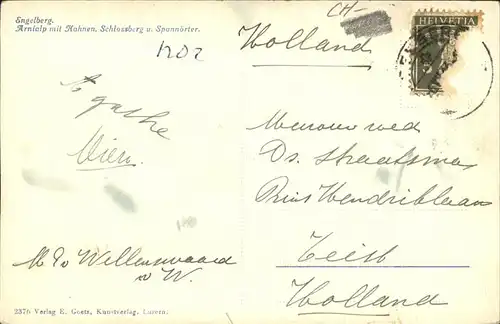 Engelberg.
Arnialp mit Hahnen, Schlossberg u. Spannörter.
CH-
Holland
HELVETIA
Agathe
Wien.
Mevrouw wed
Ds. Straatsma
Prins Hendriklaan
Zeist
Holland
W.
2376 Verlag E. Goetz, Kunstverlag, Luzern.